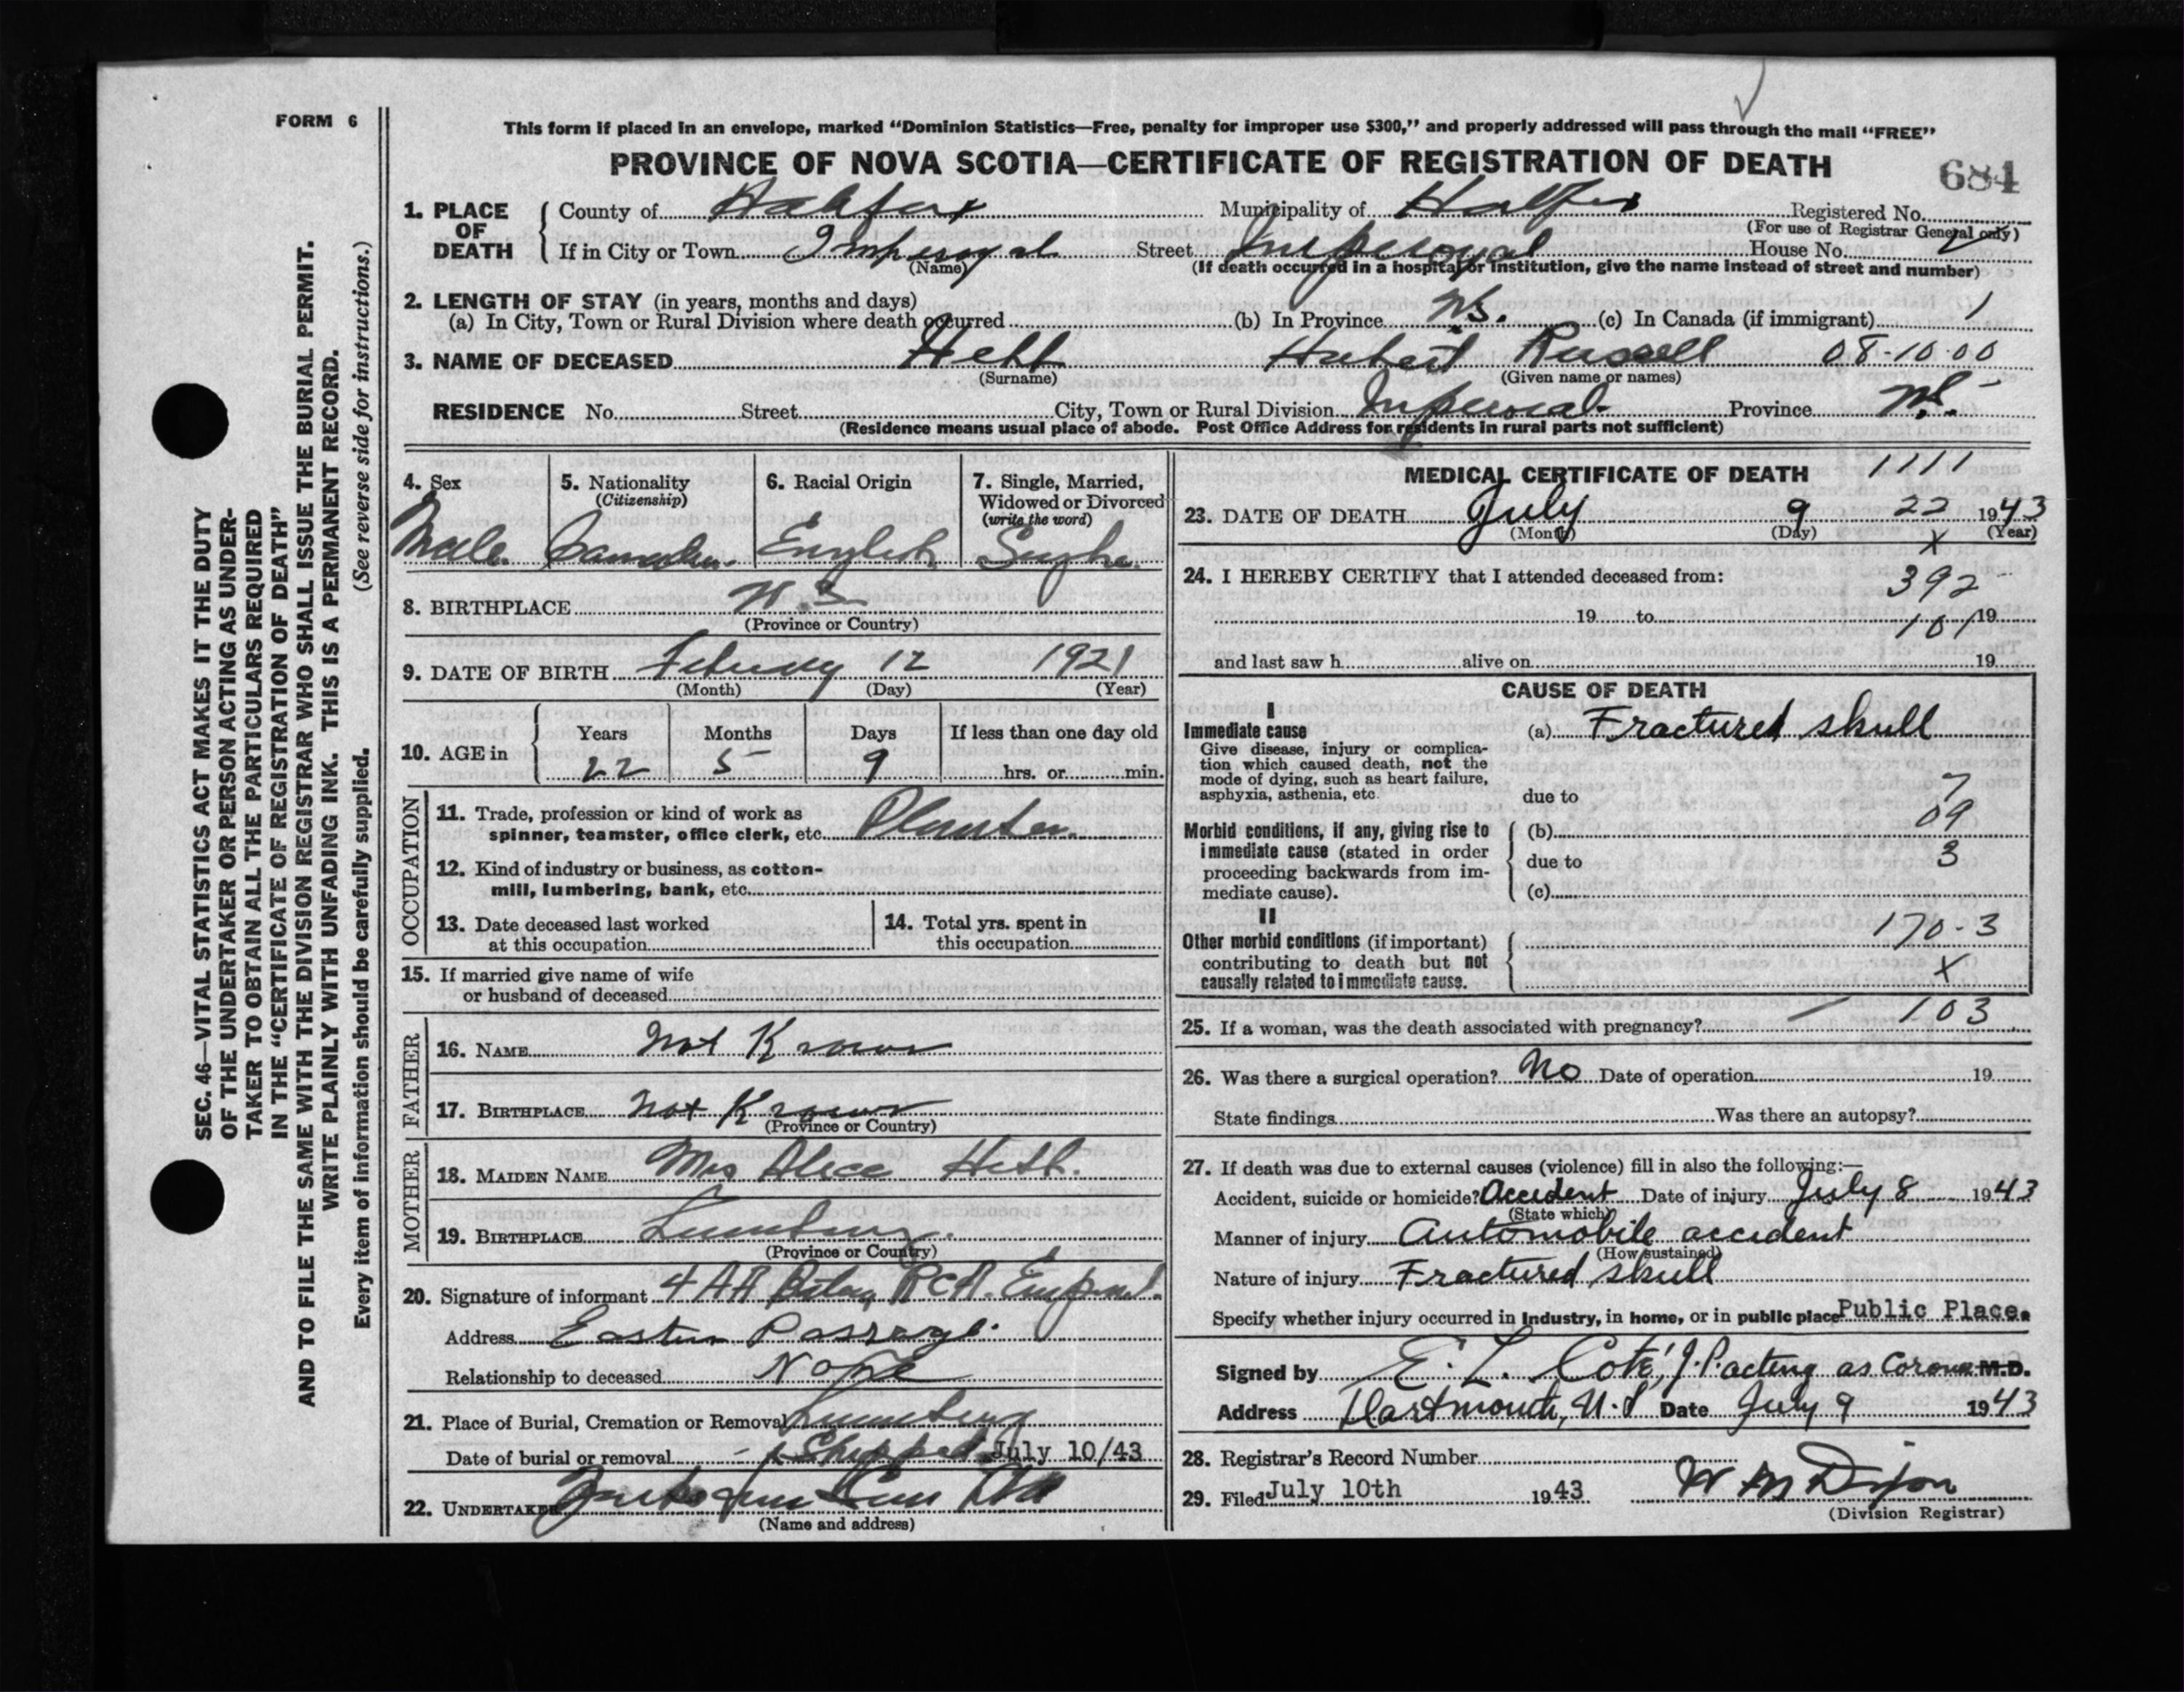 FORM 6
This form if placed in an envelope, marked "Dominion Statistics—Free, penalty for improper use $300," and properly addressed will pass through the mail "FREE"
PROVINCE OF NOVA SCOTIA—CERTIFICATE OF REGISTRATION OF DEATH
684
1. PLACE OF DEATH
County of Halifax Municipality of Halifax Registered No.
(For use of Registrar General only)
If in City or Town Imperoyal Street Imperoyal House No.
(Name) (If death occurred in a hospital or institution, give the name instead of street and number)
2. LENGTH OF STAY (in years, months and days)
(a) In City, Town or Rural Division where death occurred (b) In Province N.S. (c) In Canada (if immigrant) 1
3. NAME OF DECEASED Hebb Hubert Russell 08-10-00
(Surname) (Given name or names)
RESIDENCE No. Street City, Town or Rural Division Province N.S.
(Residence means usual place of abode. Post Office Address for residents in rural parts not sufficient)
4. Sex
Male
5. Nationality
(Citizenship)
Canadian
6. Racial Origin
English
7. Single, Married, Widowed or Divorced
(write the word)
Single
8. BIRTHPLACE N.S
(Province or Country)
9. DATE OF BIRTH February 12 1921
(Month) (Day) (Year)
10. AGE in
Years Months Days If less than one day old
22 5 9 hrs. or min.
OCCUPATION
11. Trade, profession or kind of work as
spinner, teamster, office clerk, etc.
12. Kind of industry or business, as cotton-
mill, lumbering, bank, etc.
13. Date deceased last worked
at this occupation
14. Total yrs. spent in
this occupation
15. If married give name of wife
or husband of deceased
FATHER
16. NAME Not Known
17. BIRTHPLACE Not Known
(Province or Country)
MOTHER
18. MAIDEN NAME Mrs Alice Hebb.
19. BIRTHPLACE Lunenburg.
(Province or Country)
20. Signature of informant 4 AA R.C.A.
Address Eastern Passage.
Relationship to deceased None
21. Place of Burial, Cremation or Removal Lunenburg
Date of burial or removal - Shipped July 10/43
22. UNDERTAKER
(Name and address)
MEDICAL CERTIFICATE OF DEATH 1111
23. DATE OF DEATH July 9 22 1943
(Month) (Day) (Year)
X
24. I HEREBY CERTIFY that I attended deceased from:
392
19 to 19
101
and last saw h alive on 19
CAUSE OF DEATH
I
Immediate cause
Give disease, injury or complica-
tion which caused death, not the
mode of dying, such as heart failure,
asphyxia, asthenia, etc.
(a) Fractured skull
due to 7
Morbid conditions, if any, giving rise to
immediate cause (stated in order
proceeding backwards from im-
mediate cause).
(b) 09
due to 3
(c)
II
Other morbid conditions (if important)
contributing to death but not
causally related to immediate cause.
170-3
X
25. If a woman, was the death associated with pregnancy? — 103
26. Was there a surgical operation? No Date of operation 19
State findings Was there an autopsy?
27. If death was due to external causes (violence) fill in also the following:—
Accident, suicide or homicide? Accident Date of injury July 8 1943
(State which)
Manner of injury Automobile accident
(How sustained)
Nature of injury Fractured skull
Specify whether injury occurred in Industry, in home, or in public place Public Place.
Signed by E. L. Coté, J.P. acting as Coroner M.D.
Address Dartmouth, N.S Date July 9 1943
28. Registrar's Record Number
29. Filed July 10th 1943 W M Dixon
(Division Registrar)
SEC. 46—VITAL STATISTICS ACT MAKES IT THE DUTY
OF THE UNDERTAKER OR PERSON ACTING AS UNDER-
TAKER TO OBTAIN ALL THE PARTICULARS REQUIRED
IN THE "CERTIFICATE OF REGISTRATION OF DEATH"
AND TO FILE THE SAME WITH THE DIVISION REGISTRAR WHO SHALL ISSUE THE BURIAL PERMIT.
WRITE PLAINLY WITH UNFADING INK. THIS IS A PERMANENT RECORD.
Every item of information should be carefully supplied. (See reverse side for instructions.)